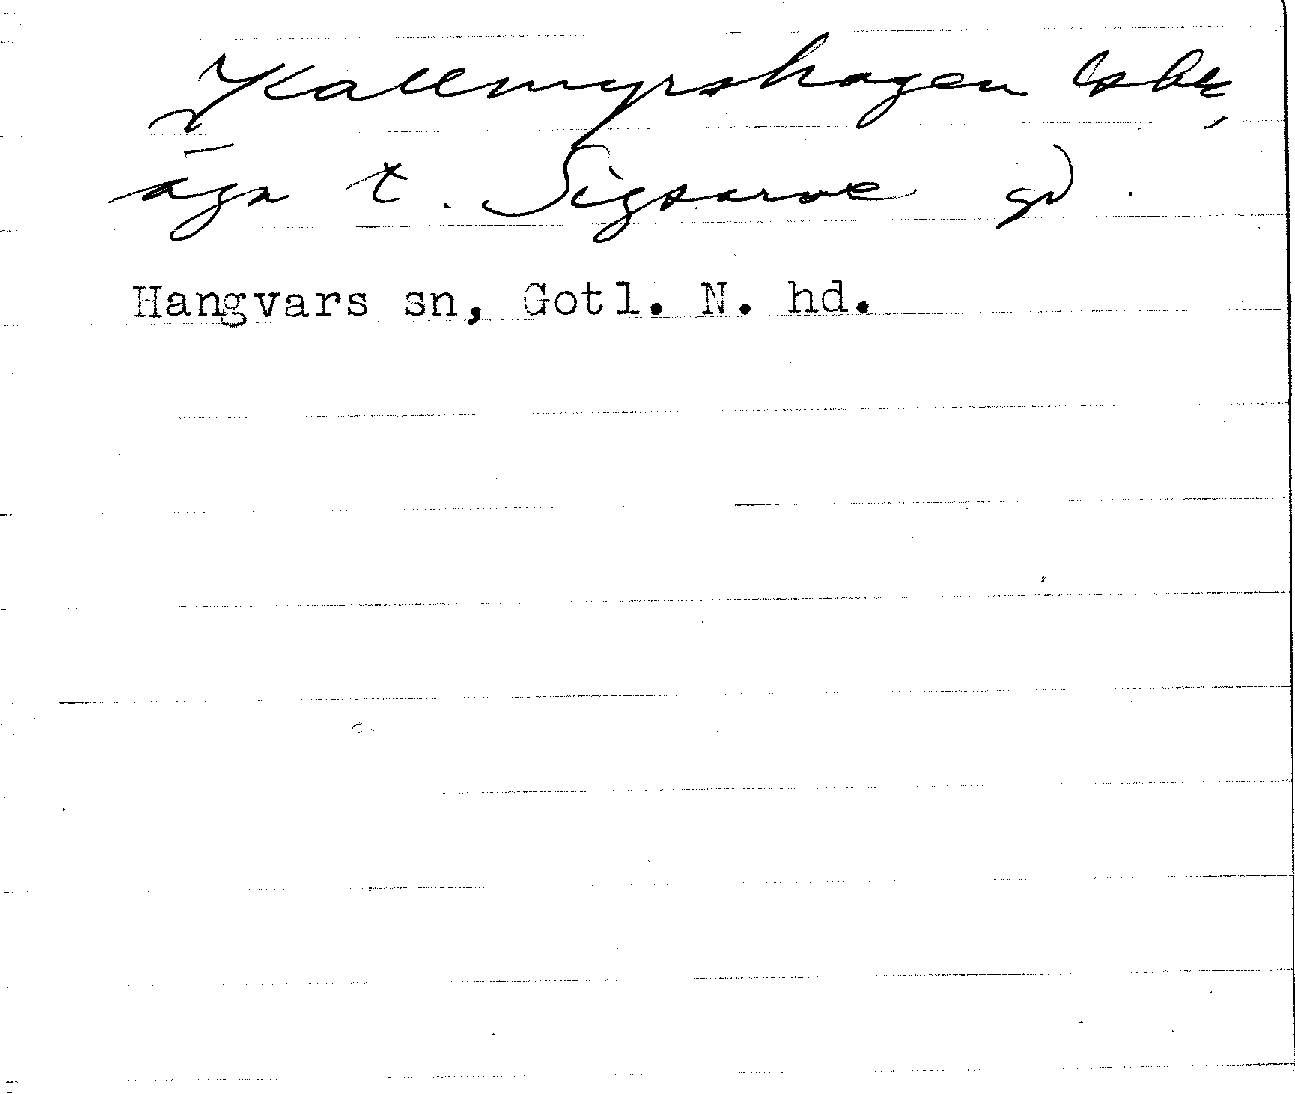 Kallmyrshagen
äga t. Sigsarve gd.
Hangvars sn, Gotl. N. hd.